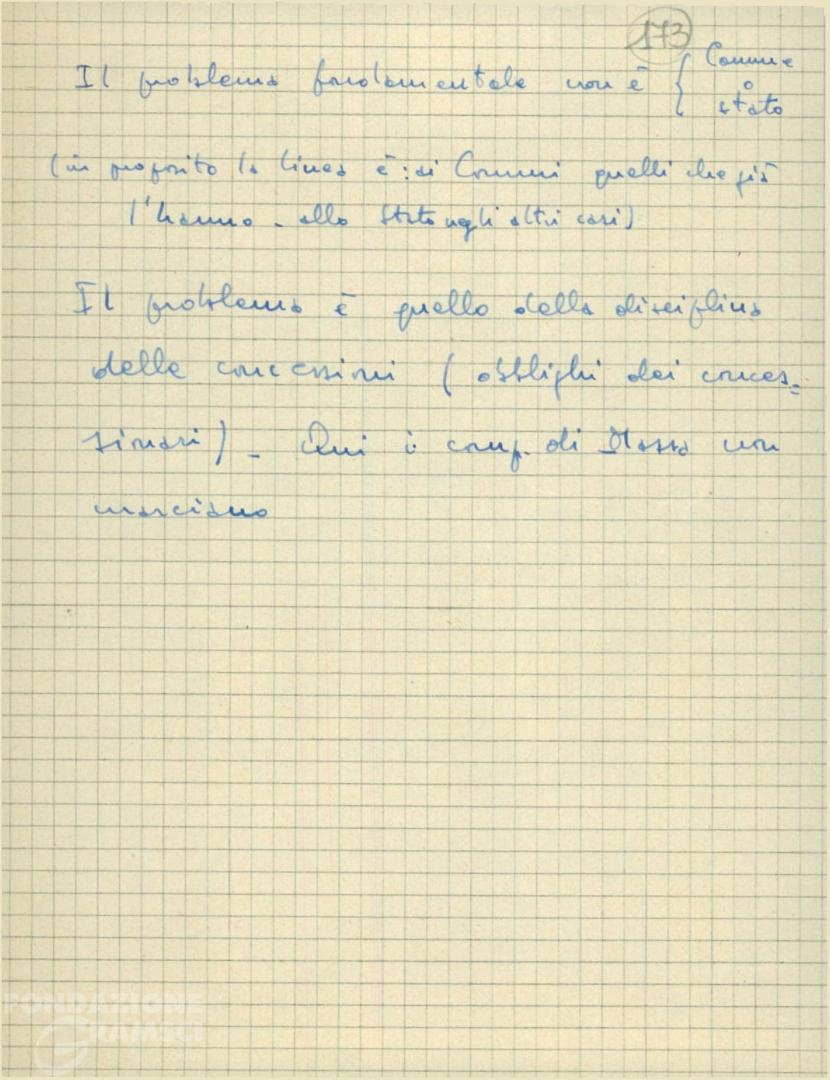 173
Il problema fondamentale non è { Comune
o
stato
(in proposito la linea è: ai Comuni quelli che già
l'hanno - allo Stato negli altri casi)
Il problema è quello della disciplina
delle concessioni (obblighi dei conces=
sionari) - Qui i comp. di Massa non
marciano
FONDAZIONE
GRAMSCI